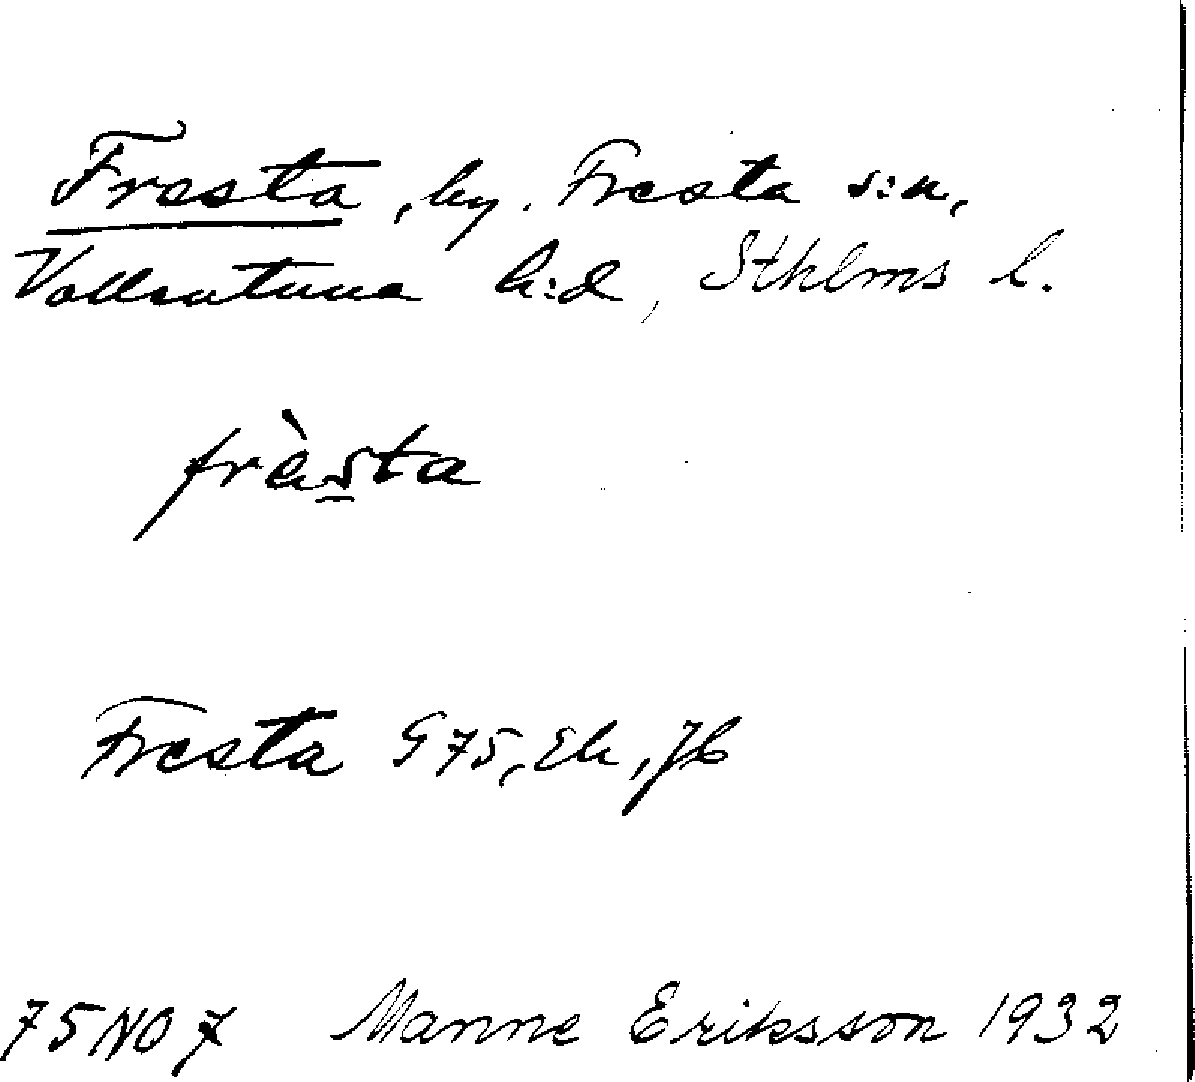 Fresta, by. Fresta s:n,
Vallentuna h:d, Sthlms l.
frèsta
Fresta G75, Ek, Jb
75 NO 7 Manne Eriksson 1932